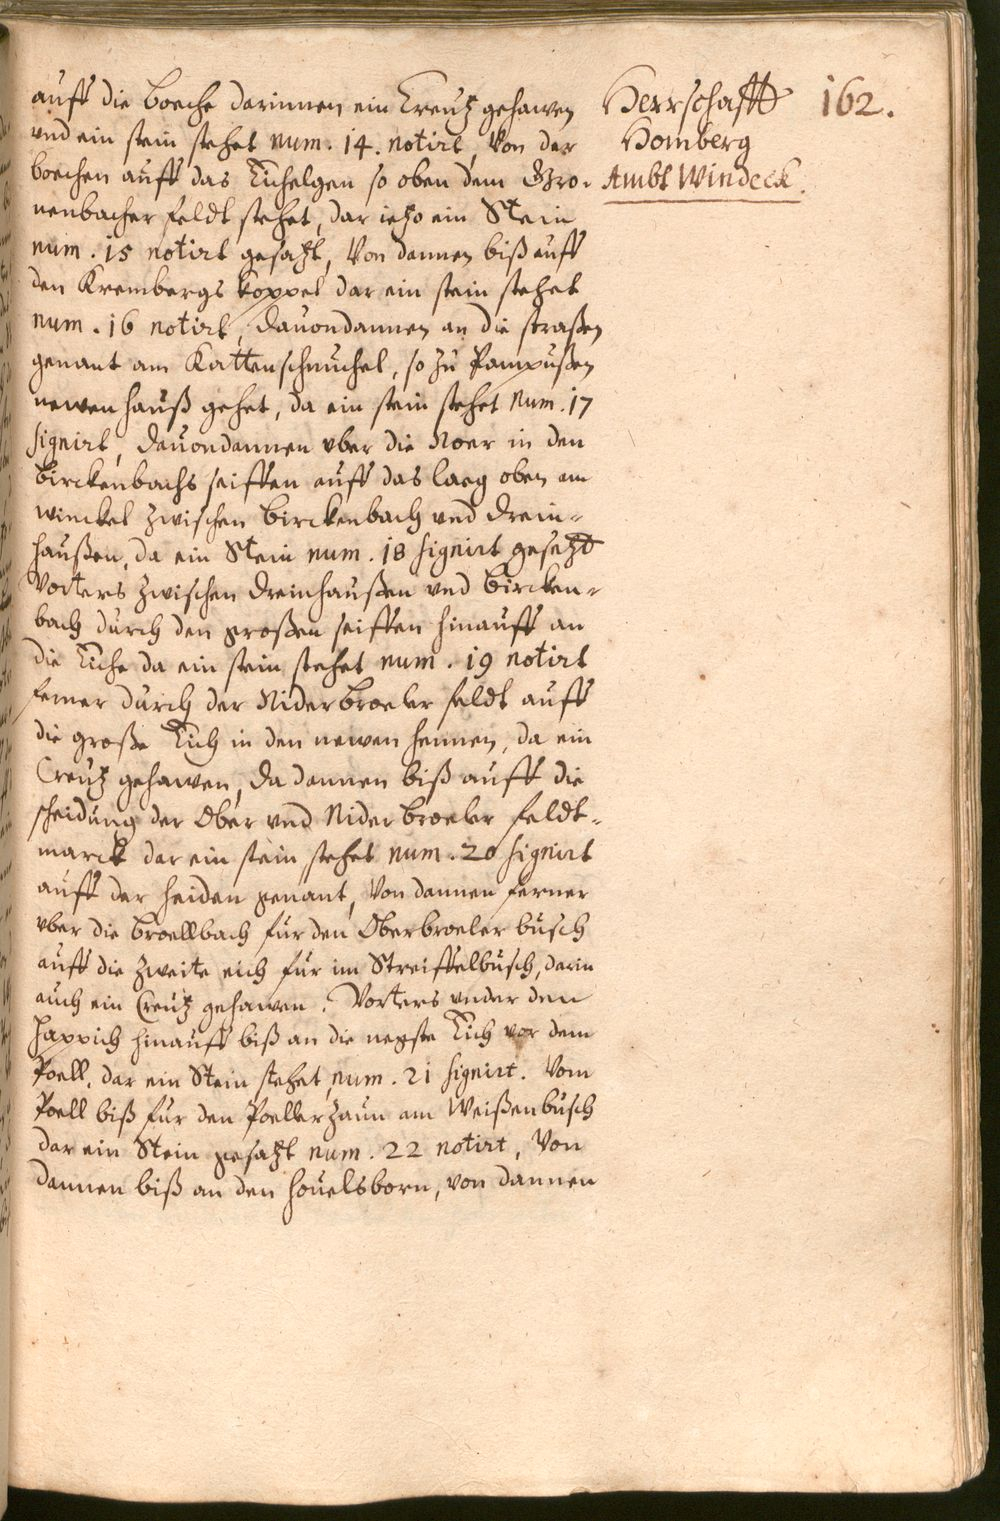 Herrschafft
Homberg
Ambt Windeck.
162.
auff die boeche darinnen ein Creutz gehawen
vnd ein stein stehet num. 14. notirt, Von der
boechen auff das Eichelgen so oben dem Gro-
nenbacher feldt stehet, dar ietzo ein Stein
num. 15 notirt gesatzt, Von dannen biß auff
den Krembergs koppel dar ein stein stehet
num. 16 notirt, dauondannen an die straßen
genant am Kattenschnuchel, so zu Pampußen
newen hauß gehet, da ein stein stehet Num. 17
signirt, dauondannen vber die Noer in den
Birckenbachs seiffen auff das laeg oben am
winckel zwischen Birckenbach vnd drein-
haußen, da ein Stein num. 18 signirt gesetzt
Vorters zwischen dreinhaußen vnd Bircken-
bach durch den großen seiffen hinauff an
die Eiche da ein stein stehet num. 19 notirt
ferner durch der Nider broeler feldt auff
die große Eich in den newen hennen, da ein
Creutz gehawen, da dannen biß auff die
scheidung der Ober vnd Nider broeler feldt-
marck dar ein stein stehet num. 20 signirt
auff der heiden genant, Von dannen ferner
vber die broellbach für den Oberbroeler busch
auff die zweite eich für im Streiffelbusch, darin
auch ein Creutz gehawen. Vorters vnder den
happich hinauff biß an die negste Eich vor dem
Poell, dar ein Stein stehet num. 21 signirt. Vom
Poell biß für den Poeller zaun am Weißenbusch
dar ein Stein gesatzt num. 22 notirt, Von
dannen biß an den houelsborn, von dannen